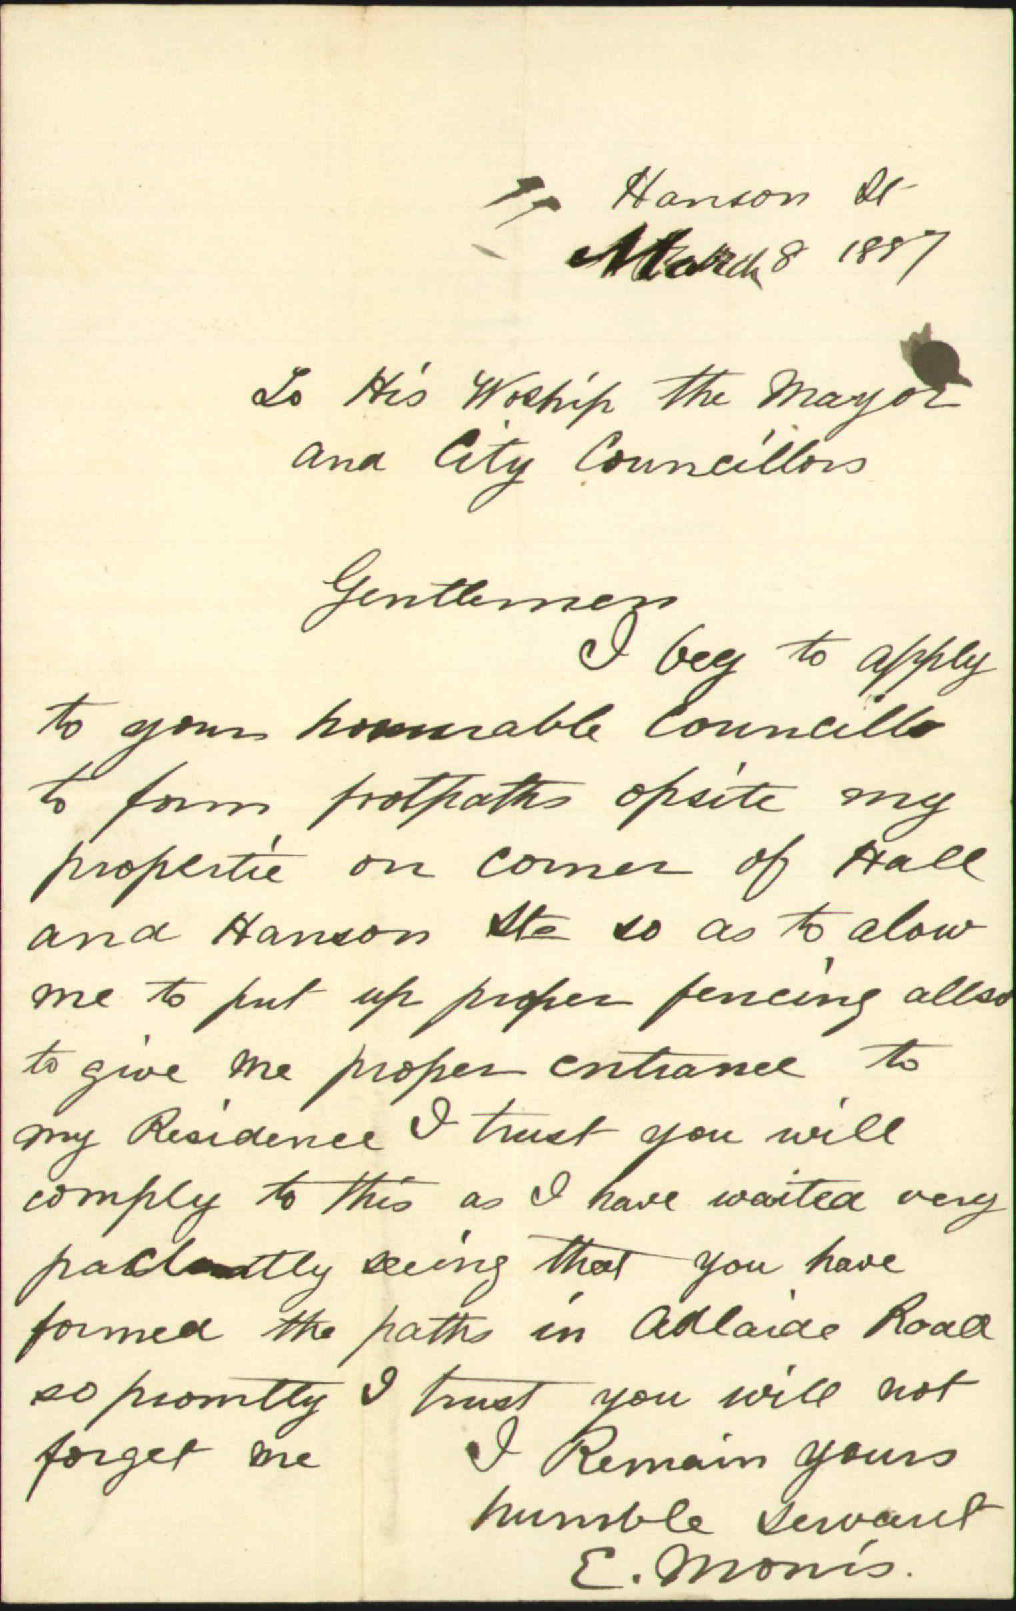 Hanson St
March 8 1887
To His Woship the Mayor
and City Councillors
Gentlemen
I beg to apply
to your honourable Councill
to form footpaths opsite my
propertie on corner of Hall
and Hanson Sts so as to alow
me to put up proper fencing allso
to give me proper entrance to
my Residence I trust you will
comply to this as I have waited very
paclantly seeing that you have
formed the paths in Adlaide Road
so promtly I trust you will not
forget me I Remain yours
humble servant
E. Morris.